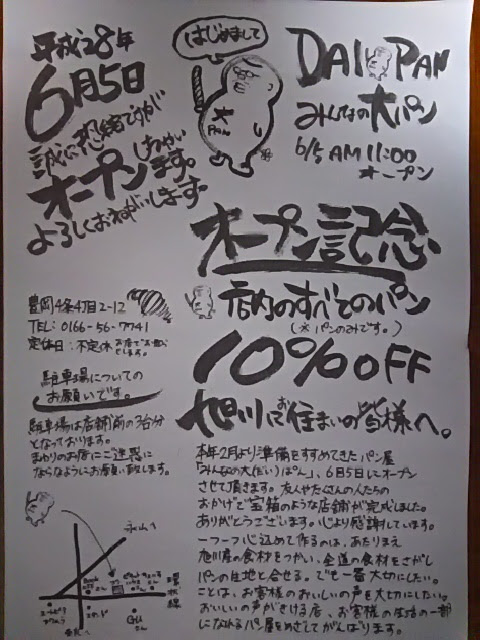 平成28年
6月5日
誠に恐縮ですが
オープンしちゃい
ます。
よろしくおねがいします。
はじめまして
大
Pan
DAI PAN
みんなの大パン
6/5 AM 11:00
オープン
オープン記念
店内のすべてのパン
(※パンのみです。)
10%OFF
旭川にお住まいの皆様へ。
豊岡4条4丁目2-12
TEL: 0166-56-7741
定休日:不定休
駐車場についての
お願いです。
駐車場は店舗前の3台分
となっております。
まわりのお店にご迷惑に
ならなようにお願い致します。
永山へ
環状線
GEOさん
本年2月より準備をすすめてきたパン屋
「みんなの大(だい)ぱん」、6月5日にオープン
させて頂きます。友人やたくさんの人たちの
おかげで宝箱のような店舗が完成しました。
ありがとうございます。心より感謝しています。
一つ一つ心込めて作るのは、あたりまえ
旭川産の食材をつかい、全道の食材をさがし
パンの生地と合せる。でも一番大切にしたい。
ことは、お客様のおいしいの声を大切にしたい。
おいしいの声がきける店、お客様の生活の一部
になれるパン屋をめざしてがんばります。